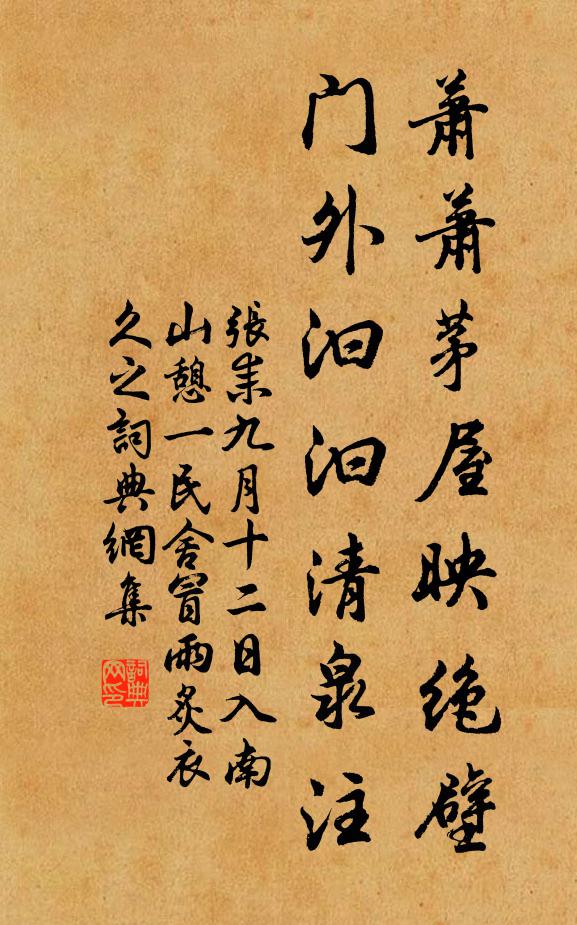 蕭蕭茅屋映绝壁
门外汩汩清泉注
張耒九月十二日入南
山憩一民舍冒雨炙衣
久之詞典網集
詞典
网印